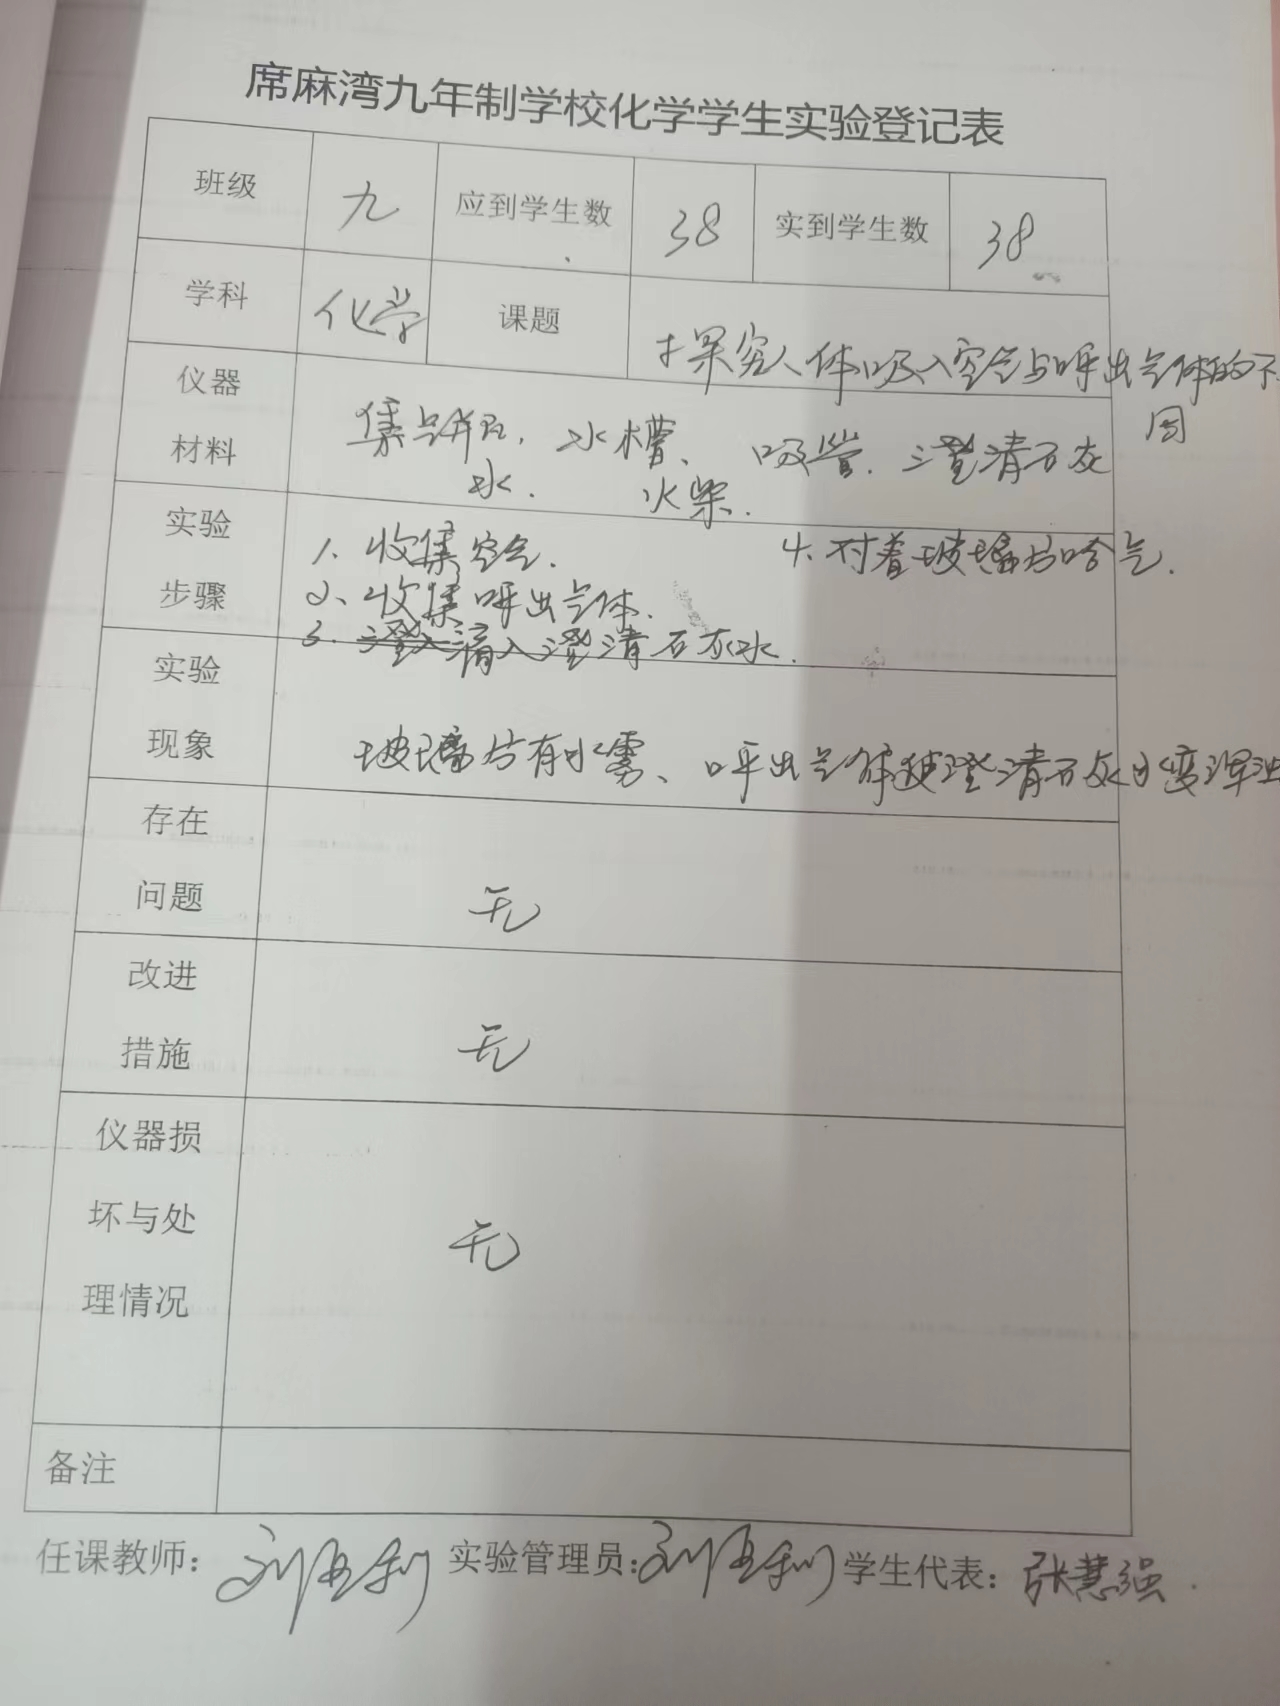 席麻湾九年制学校化学学生实验登记表
班级 九 应到学生数 38 实到学生数 38
学科 化学 课题 探究人体吸入空气与呼出气体的不
同
仪器
材料
集气瓶、水槽、吸管、澄清石灰
水、火柴.
实验
步骤
1、收集空气.
4、对着玻璃片哈气.
2、收集呼出气体.
3、滴入澄清石灰水.
实验
现象
玻璃片有水雾、呼出气体使澄清石灰水变浑浊
存在
问题
无
改进
措施
无
仪器损
坏与处
理情况
无
备注
任课教师: 实验管理员: 学生代表: 张慧强.